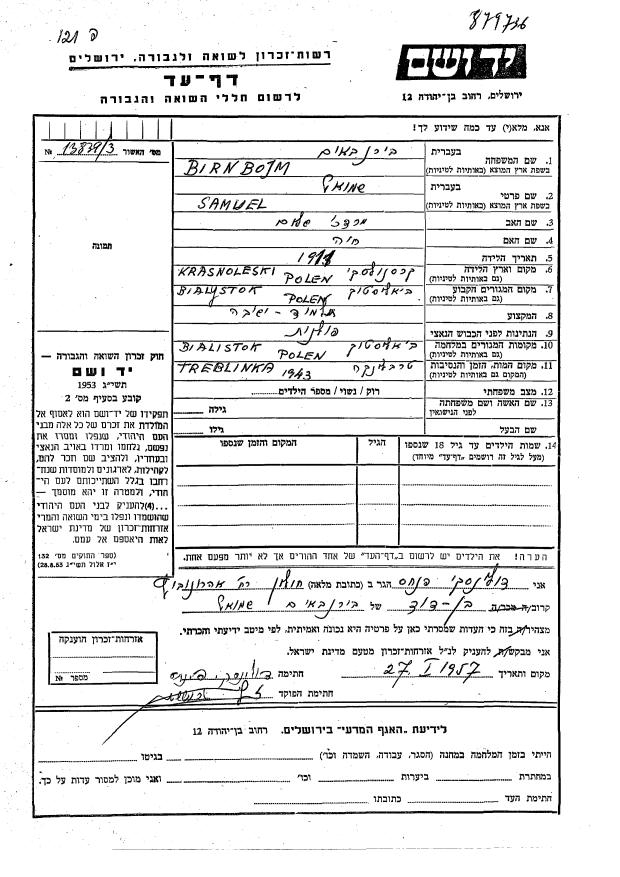 879726
פ 121
יד ושם
ירושלים, רחוב בן־יהודה 12
רשות־זכרון לשואה ולגבורה, ירושלים
דף־עד
לרשום חללי השואה והגבורה
אנא, מלא(י) עד כמה שידוע לך!
מס׳ האשור 13839/3 №
תמונה
1. שם המשפחה בעברית בירנבאום
בשפת ארץ המוצא (באותיות לטיניות) BIRNBOJM
2. שם פרטי בעברית שמואל
בשפת ארץ המוצא (באותיות לטיניות) SAMUEL
3. שם האב מרדכי שלום
4. שם האם חיה
5. תאריך הלידה 1911
6. מקום וארץ הלידה (גם באותיות לטיניות) קרסנולסקי KRASNOLESKI POLEN
7. מקום המגורים הקבוע (גם באותיות לטיניות) ביאליסטוק BIALYSTOK POLEN
8. המקצוע תלמוד - ישיבה
9. הנתינות לפני הכבוש הנאצי פולנית
10. מקומות המגורים במלחמה (גם באותיות לטיניות) ביאליסטוק BIALISTOK POLEN
11. מקום המות, הזמן והנסיבות (המקום גם באותיות לטיניות) טרבלינקה TREBLINKA 1943
12. מצב משפחתי רווק / נשוי / מספר הילדים
13. שם האשה ושם משפחתה לפני הנישואין גילה
שם הבעל גילו
14. שמות הילדים עד גיל 18 שנספו הגיל המקום והזמן שנספו
(מעל לגיל זה רושמים „דף־עד״ מיוחד)
הערה! את הילדים יש לרשום ב„דף־העד״ של אחד ההורים אך לא יותר מפעם אחת.
חוק זכרון השואה והגבורה —
יד ושם
תשי״ג 1953
קובע בסעיף מס׳ 2
תפקידו של יד־ושם הוא לאסוף אל
המולדת את זכרם של כל אלה מבני
העם היהודי, שנפלו ומסרו את
נפשם, נלחמו ומרדו באויב הנאצי
ובעוזריו, ולהציב שם וזכר להם,
לקהילות, לארגונים ולמוסדות שנח־
רבו בגלל השתייכותם לעם היהו־
די, ולמטרה זו יהא מוסמך —
...(4)להעניק לבני העם היהודי
שהושמדו ונפלו בימי השואה והמרי
אזרחות־זכרון של מדינת ישראל
לאות היאספם אל עמם.
(ספר החוקים מס׳ 132
י״ז אלול תשי״ג 28.8.53)
אני פנחס הגר ב (כתובת מלאה) חולון
קרוב/ה מכר/ה בן - דוד של בירנבאום שמואל
מצהיר/ה בזה כי העדות שמסרתי כאן על פרטיה היא נכונה ואמיתית, לפי מיטב ידיעתי והכרתי.
אני מבקש/ת להעניק לנ״ל אזרחות־זכרון מטעם מדינת ישראל.
מקום ותאריך 27 I 1957 חתימה
חתימת הפוקד
אזרחות־זכרון הוענקה
מספר №
לידיעת „האגף המדעי״ בירושלים, רחוב בן־יהודה 12
הייתי בזמן המלחמה במחנה (הסגר, עבודה, השמדה וכו׳) בגיטו
במחתרת ביערות וכו׳ ואני מוכן למסור עדות על כך.
חתימת העד כתובתו